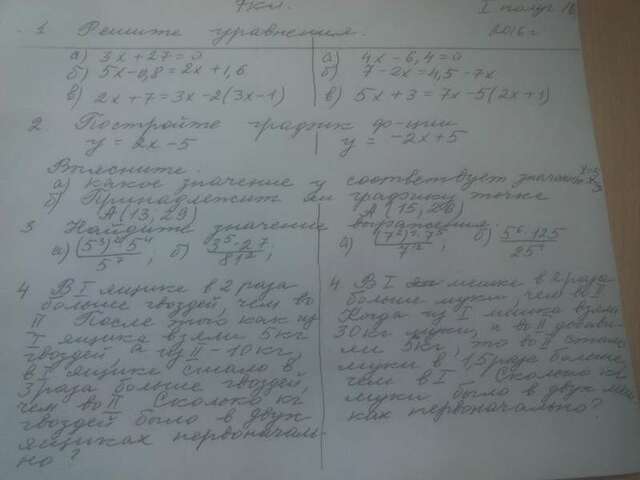 7кл. I полуг 16
1 Решите уравнения. 2016г
а) 3x + 27 = 0
б) 5x - 0,8 = 2x + 1,6
в) 2x + 7 = 3x - 2(3x - 1)
а) 4x - 6,4 = 0
б) 7 - 2x = 4,5 - 7x
в) 5x + 3 = 7x - 5(2x + 1)
2 Постройте график ф-ции
y = 2x - 5 y = -2x + 5
Выясните.
а) какое значение y соответствует значению
б) Принадлежит ли графику точке
A (13, 29) A (15, 26)
3 Найдите значение выражения
а) (5³)² 5⁴ / 5⁷ ; б) 3⁵ · 27 / 81² ;
а) (7²)³ · 7⁵ / 7⁷ б) 5⁶ · 125 / 25²
4 В I ящике в 2 раза
больше гвоздей, чем во
II После того как из
I ящика взяли 5 кг
гвоздей, а из II - 10 кг,
в I ящике стало в
3 раза больше гвоздей,
чем во II Сколько кг
гвоздей было в двух
ящиках первоначаль-
но ?
4 В I мешке в 2 раза
больше муки, чем во II
Когда из I мешка взяли
30 кг муки, а во II добави-
ли 5 кг, то во II стало
муки в 1,5 раза больше
чем в I. Сколько кг
муки было в двух меш-
ках первоначально?